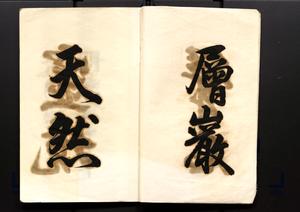 層巖
天然